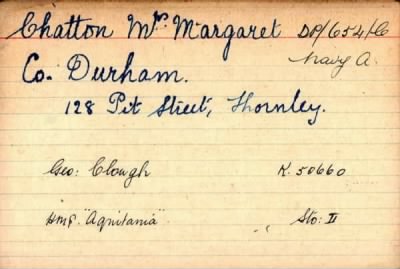 Chatton Mrs Margaret DP/654/C
Navy A.
Co. Durham.
128 Pit Street, Thornley.
Geo: Clough K. 50660
H.M.S. "Aquitania" Sto: II